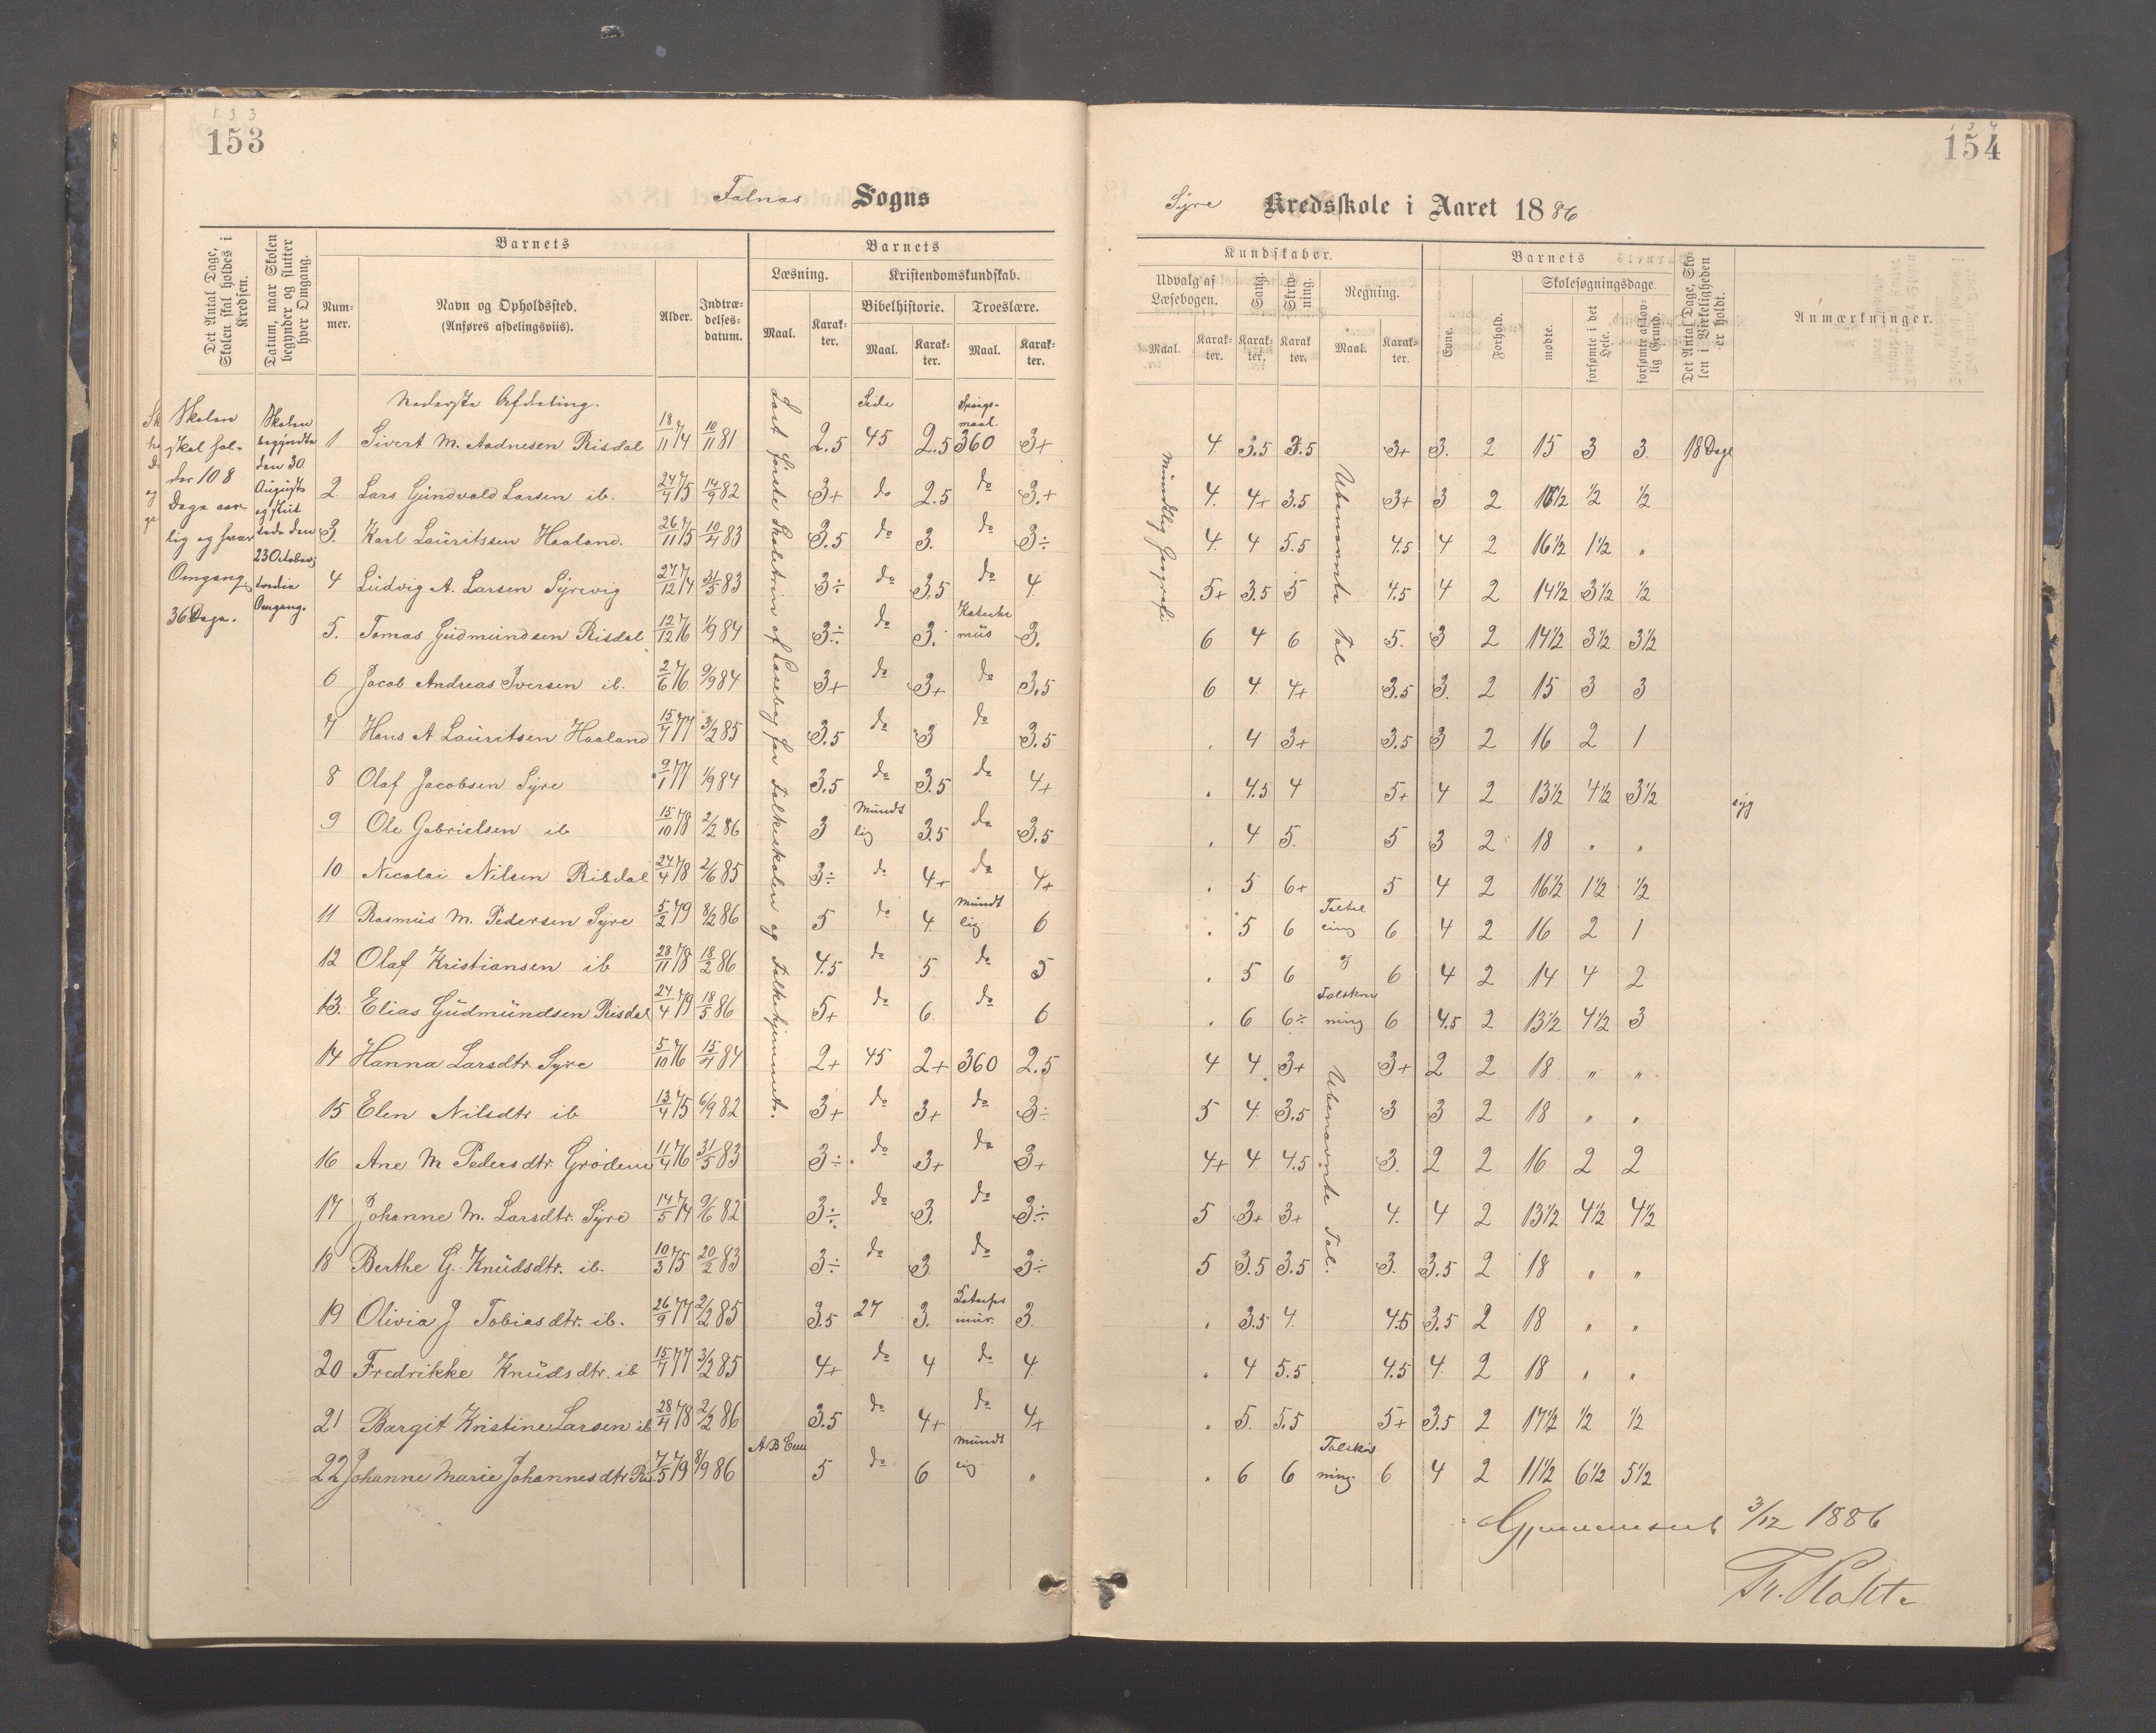 133
153
Falnes Sogns
Det Antal Dage, Skolen skal holdes i Kredsen.
Datum, naar Skolen begynder og slutter hver Omgang.
Barnets
Nummer.
Navn og Opholdssted.
(Anføres afdelingsviis).
Alder.
Indtrædelsesdatum.
Barnets
Læsning.
Maal.
Karakter.
Kristendomskundskab.
Bibelhistorie.
Maal.
Karakter.
Troeslære.
Maal.
Karakter.
Skolen
skal hol-
des 108
Dage aar-
lig og hver
Omgang
36 Dage.
Skolen
begyndte
den 30
Augusts
og slut
tede den
23 October;
tredie
Omgang.
Læst første Skoletrin af Læsebog for Folkeskolen og Folkehjemmet.
Nederste Afdeling. Side Spørgs-
maal.
1 Sivert M. Aadnesen Risdal 18/11 74 10/11 81 2.5 45 2.5 360 3+
2. Lars Gundvald Larsen ib. 24/4 75 14/9 82 3+ do 2.5 do 3.+
3. Karl Lauritssen Haaland. 26/11 75 10/4 83 3.5 do 3. do 3÷
4 Ludvig A. Larsen Syrevig 27/12 74 31/5 83 3÷ do 3.5 do 4
5. Tomas Gudmundsen Risdal 12/12 76 1/9 84 3÷ do 3. Kateke
mus 3.
6 Jacob Andreas Iversen ib. 2/6 76 9/9 84 3+ do 3+ do 3.5
7 Hans A Lauritsen Haaland 15/7 77 3/2 85 3.5 do 3 do 3.5
8 Olaf Jacobsen Syre 9/1 77 1/9 84 3.5 do 3.5 do 4+
9 Ole Gabrielsen ib 15/10 78 2/2 86 3 Mundt
lig 3.5 do 3.5
10 Nicolai Nilsen Risdal 24/4 78 2/6 85 3÷ do 4+ do 4+
11 Rasmus M. Pedersen Syre 5/2 79 8/2 86 5 do 4 Mundt
lig 6
12 Olaf Kristiansen ib 28/11 78 18/2 86 4.5 do 5 do 5
13. Elias Gudmundsen Risdal 24/4 79 18/5 86 5+ do 6 do 6
14 Hanna Larsdtr. Syre 5/10 76 15/4 84 2+ 45 2+ 360 2.5
15 Elen Nilsdtr ib 13/4 75 6/9 82 3+ do 3+ do 3÷
16 Ane M Pedersdtr. Grødem 11/4 76 31/5 83 3÷ do 3+ do 3+
17 Johanne M. Larsdtr. Syre 14/5 74 9/6 82 3÷ do 3. do 3÷
18 Berthe G. Knudsdtr. ib. 10/3 75 20/2 83 3÷ do 3 do 3÷
19 Olivia J Tobiasdtr. ib. 26/9 77 2/2 85 3.5 27 3. 3.
20 Fredrikke Knudsdtr. ib 15/7 77 3/2 85 4+ do 4 do 4
21 Bargit Kristine Larsen ib 28/4 78 2/2 86 3.5 do 4+ do 4+
22 Johanne Marie Johannesdtr Ris. 7/5 79 8/9 86 5 do 6 Mundt
lig "
134
154
Syre Kredsskole i Aaret 1886
Kundskaber.
Udvalg af Læsebogen.
Maal.
Karakter.
Sang.
Karakter.
Skrivning.
Karakter.
Regning.
Maal.
Karakter.
Barnets
Evne.
Forhold.
Skolesøgningsdage.
mødte.
forsømte i det Hele.
forsømte af lovlig Grund.
Det Antal Dage, Skolen i Virkeligheden er holdt.
Anmærkninger.
Mundtlig Geografi
Ubenævnte Tal
4 3.5 3.5 3+ 3. 2 15 3 3 18 Dage
4. 4+ 3.5 3+ 3 2 16 1/2 1/2 1/2
4. 4 5.5 4.5 4 2 16 1/2 1 1/2 "
5+ 3.5 5 4.5 4 2 14 1/2 3 1/2 1/2
6 4 6 5. 3 2 14 1/2 3 1/2 3 1/2
6 4 4+ 3.5 3. 2 15 3 3
. 4 3+ 3.5 3 2 16 2 1
. 4.5 4 5+ 4 2 13 1/2 4 1/2 3 1/2 syg
. 4 5. 5 3 2 18 " "
. 5 6+ 5 4 2 16 1/2 1 1/2 1/2
. 5 6 6 4 2 16 2 1
. 5 6 og 6 4 2 14 4 2
. 6 6÷ 6 4.5 2 13 1/2 4 1/2 3
4 4 3+ 3+ 2 2 18 " "
Ubenævnte Tal.
5 4 3.5 3 3 2 18 " "
4+ 4 4.5 3. 2 2 16 2 2
5 3+ 3+ 4. 4 2 13 1/2 4 1/2 4 1/2
5 3.5 3.5 3. 3.5 2 18 " "
. 3.5 4. 4.5 3.5 2 18 " "
. 4 5.5 4.5 4 2 18 " "
. 5. 5.5 5+ 3.5 2 17 1/2 1/2 1/2
. 6 6 6 4 2 11 1/2 6 1/2 5 1/2
Gjennemseet 3/12 1886